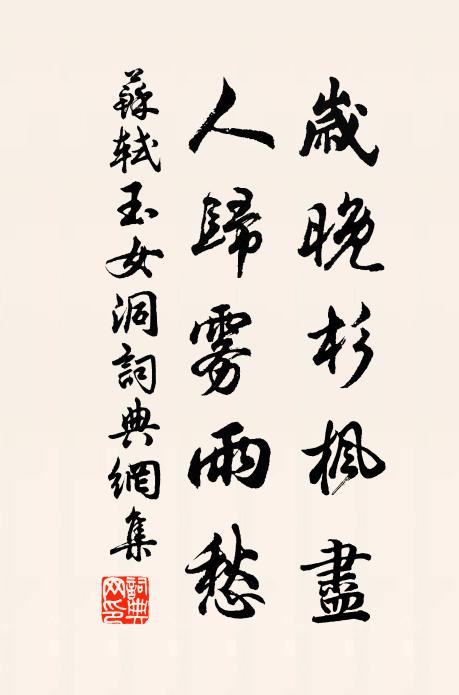 歲晚杉楓盡
人歸雾雨愁
蘇軾玉女洞詞典網集
詞典網印